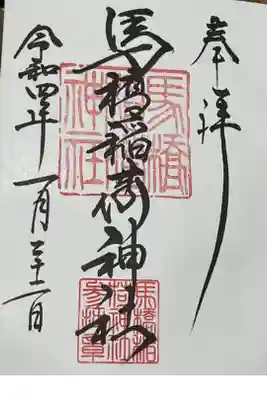 奉拝
馬橋稲荷神社
令和四年一月二十二日
馬橋
神社
馬橋稲
荷神社
参拝章